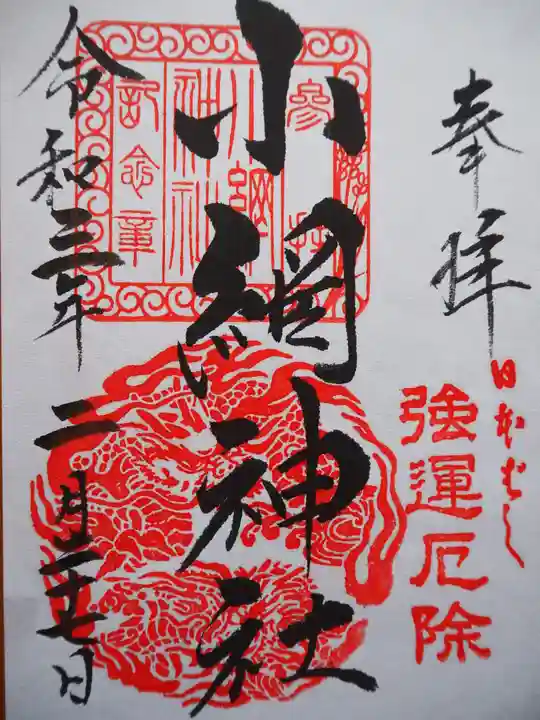 奉拝
日本ばし
強運厄除
小網神社
参拝
小網
神社
記念章
令和三年二月二十七日